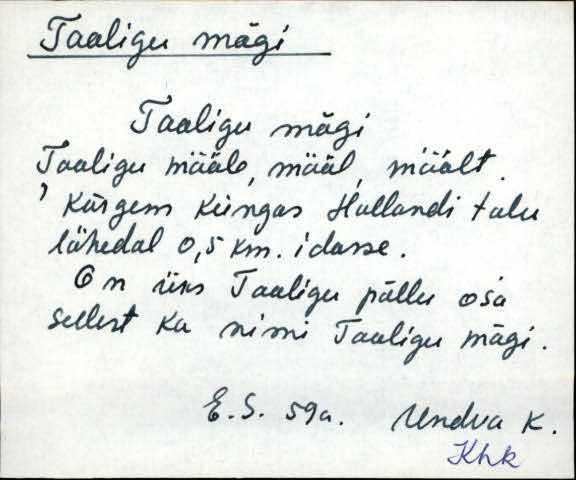 Taaligu mägi
Taaligu mägi
Taaligu määle, määl, mäält.
, Kürgem küngas Hallandi talu
lähedal 0,5 km. idasse.
On üks Taaligu põllu osa
sellest ka nimi Taaligu mägi.
E. S. 59a. Undva K.
Khk